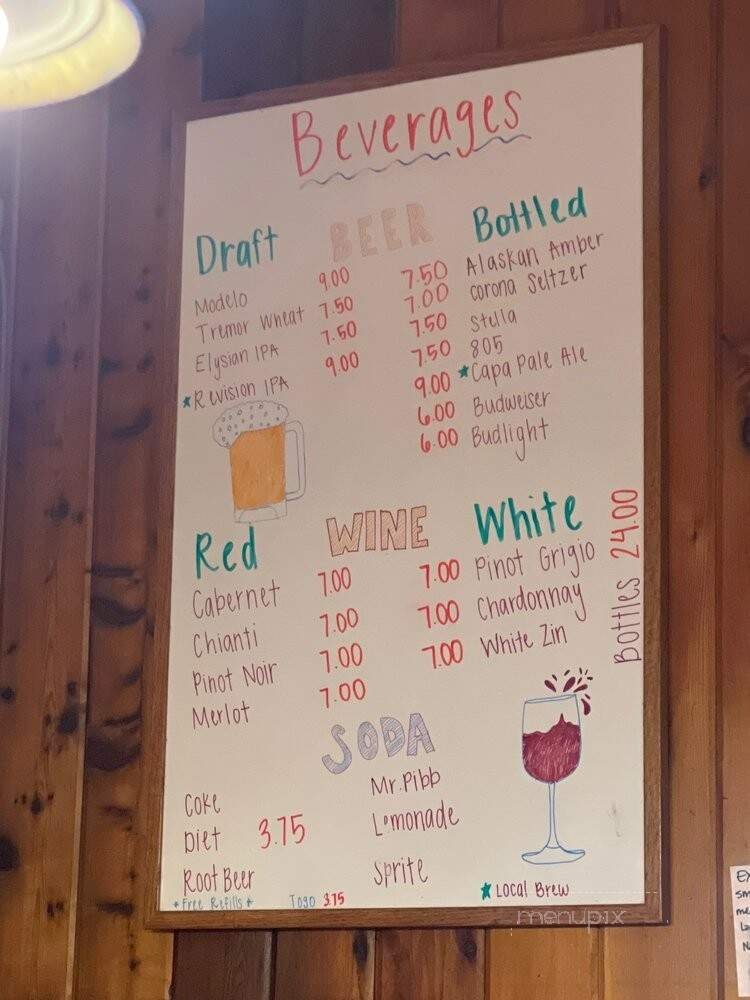 Beverages
BEER
Draft
Modelo 9.00
Tremor Wheat 7.50
Elysian IPA 7.50
★Revision IPA 9.00
Bottled
7.50 Alaskan Amber
7.00 corona Seltzer
7.50 Stella
7.50 805
9.00 ★Capa Pale Ale
6.00 Budweiser
6.00 Budlight
WINE
Red
Cabernet 7.00
Chianti 7.00
Pinot Noir 7.00
Merlot 7.00
White
7.00 Pinot Grigio
7.00 Chardonnay
7.00 White Zin
Bottles 24.00
SODA
Coke
Diet 3.75
Root Beer
Mr. Pibb
Lemonade
Sprite
*Free Refills*
Togo 3.75
★ Local Brew
menupix